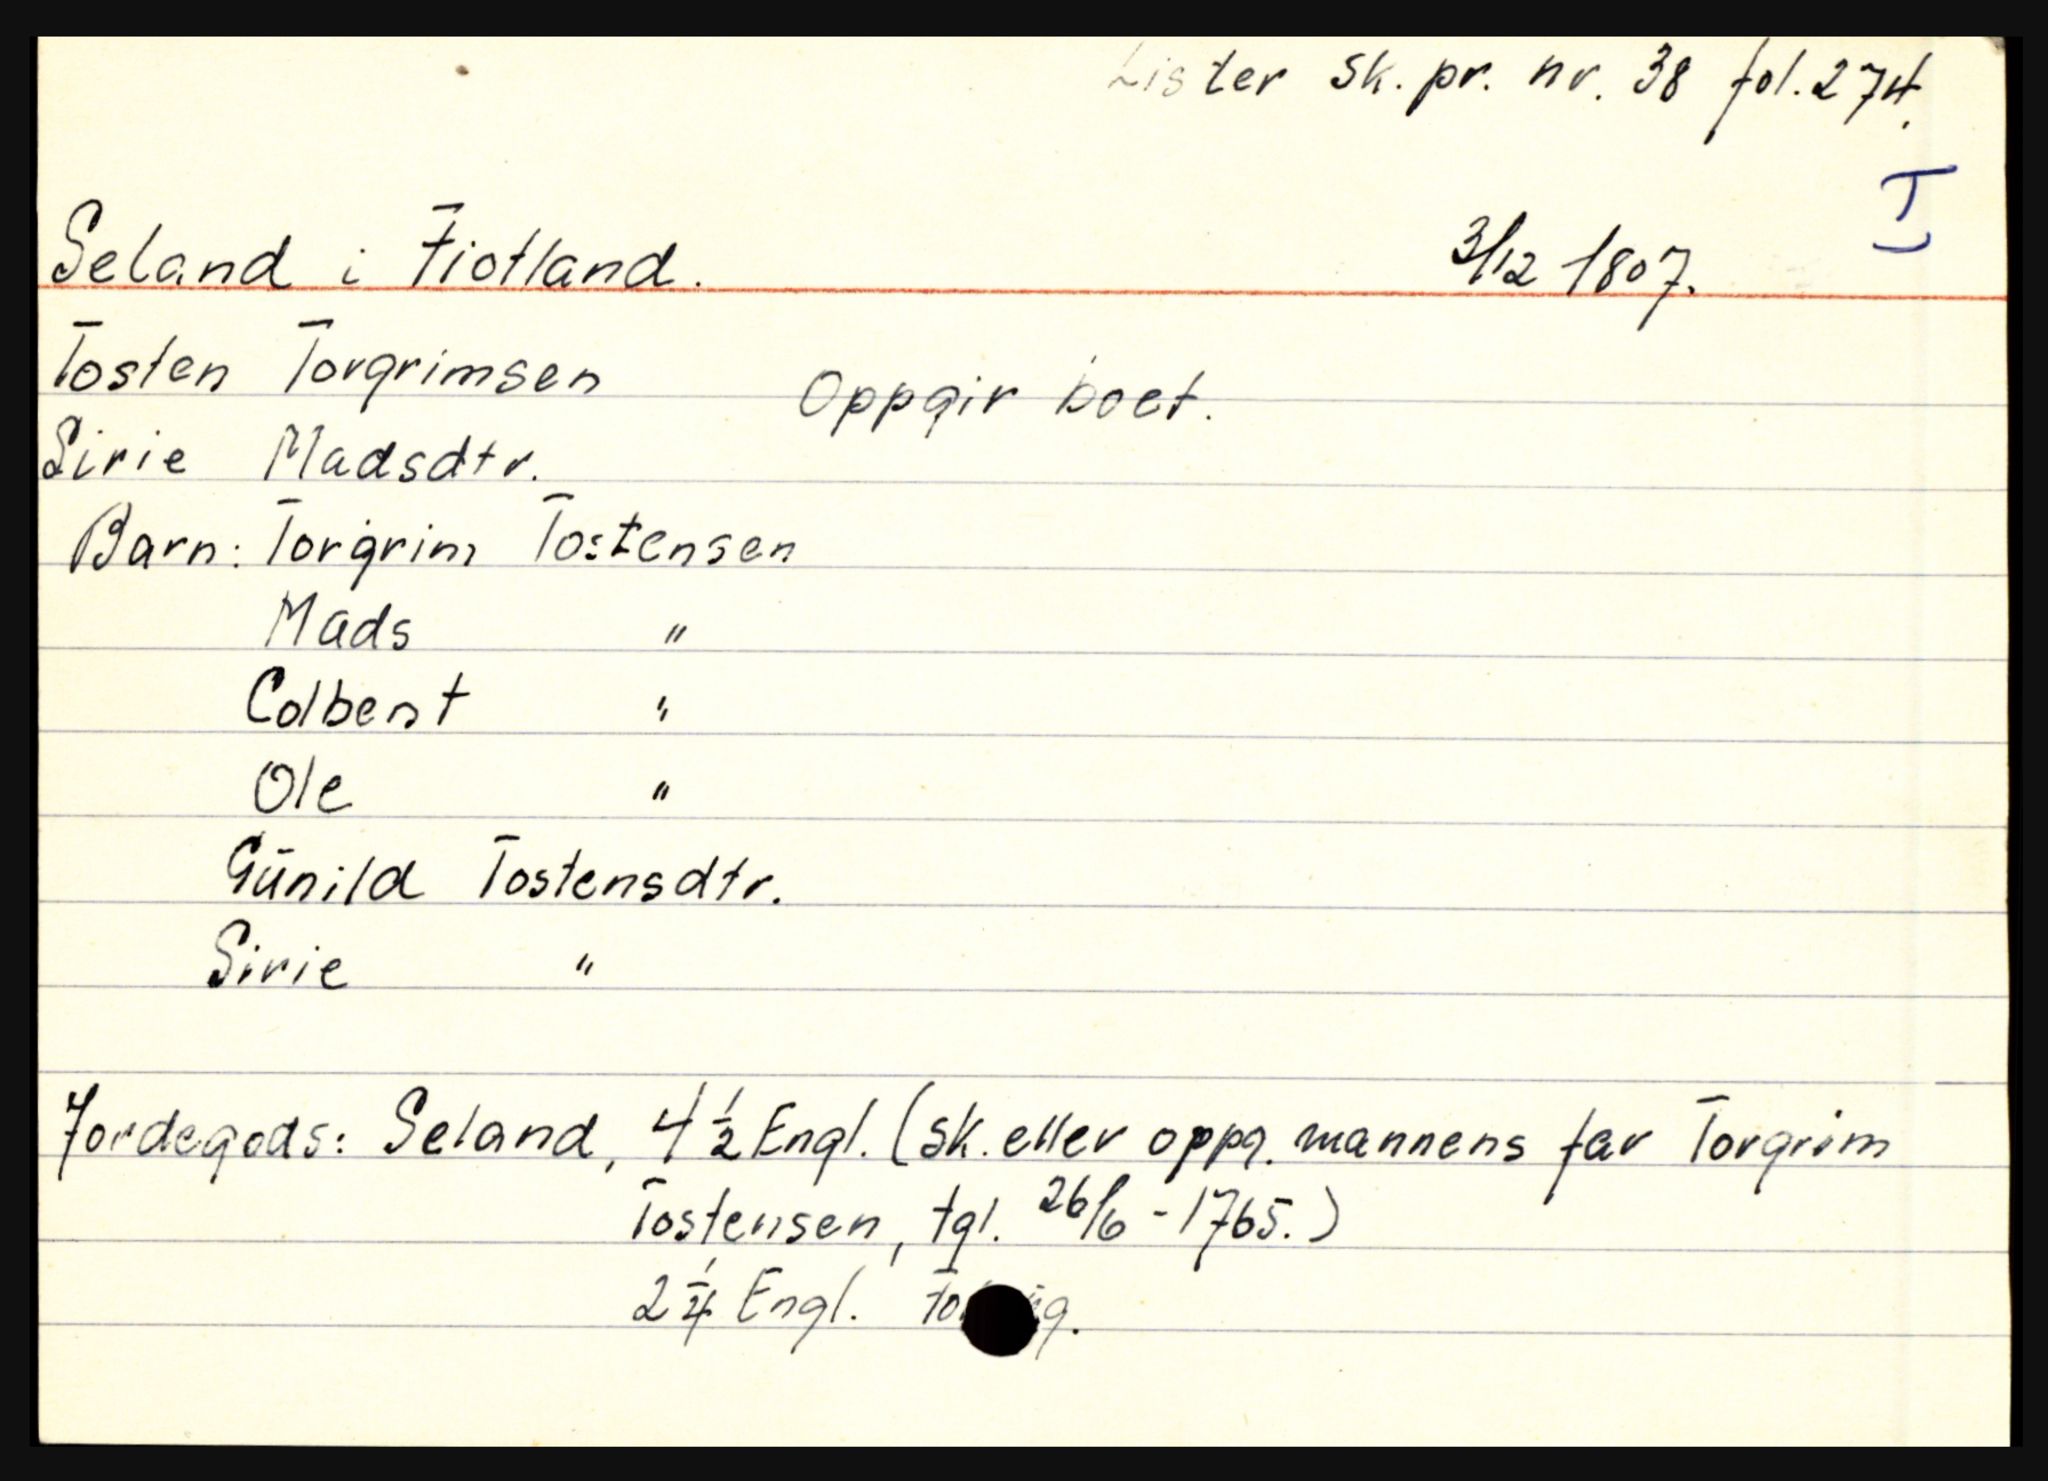 Lister sk. pr. nr. 38 fol. 274.
I
Seland i Fiotland. 3/12 1807.
Tosten Torgrimsen Oppgir boet.
Sirie Madsdtr.
Barn: Torgrim Tostensen
Mads "
Colbent "
Ole "
Gūnild Tostensdtr.
Sirie "
Jordegods: Seland, 4 1/2 Engl. (sk. eller oppg. mannens far Torgrim
Tostensen, tgl. 26/6 - 1765.)
2 1/4 Engl.